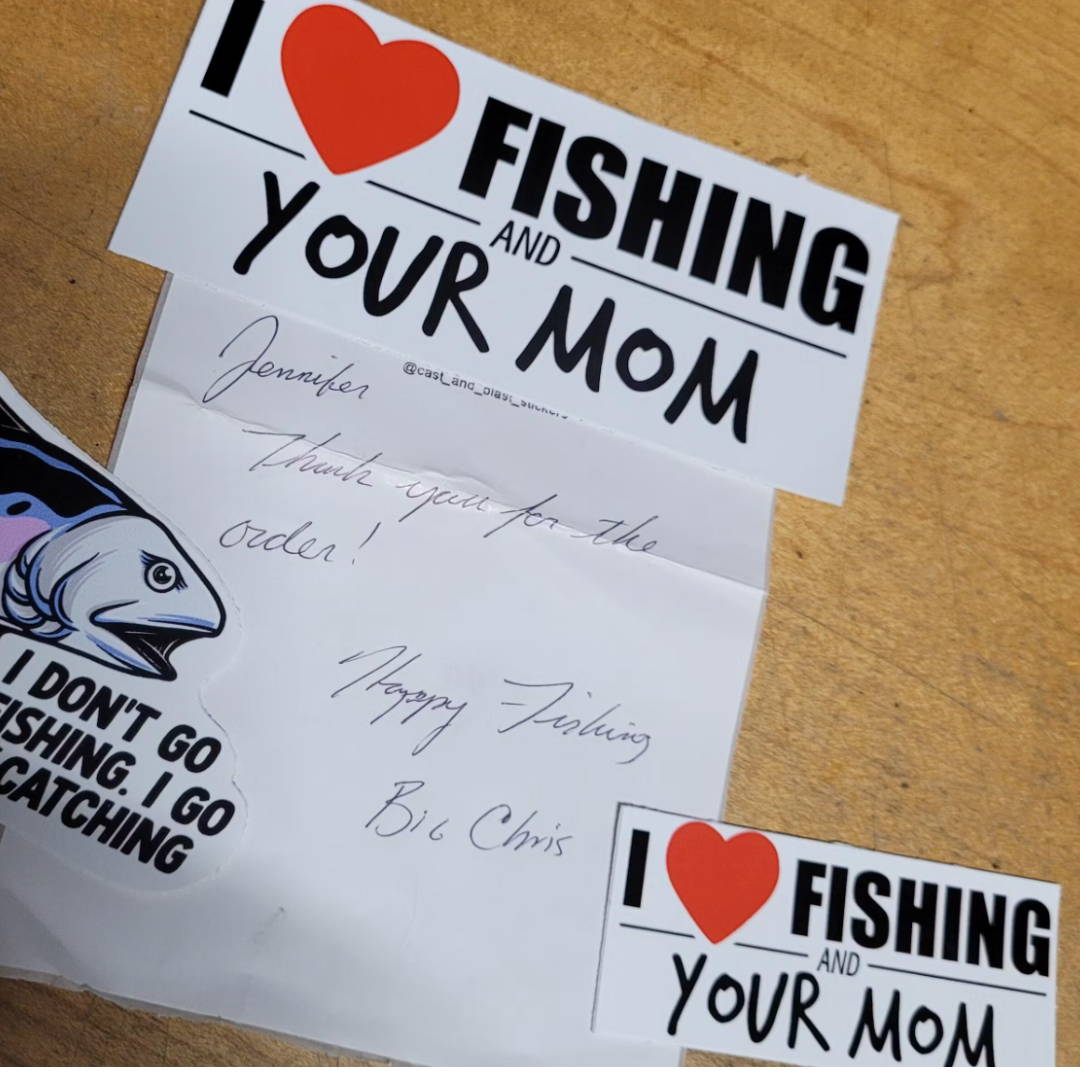 I ❤ FISHING
AND
YOUR MOM
@cast_and_blast_stickers
Jennifer
Thank you for the
order!
Happy Fishing
Big Chris
I DON'T GO
FISHING. I GO
CATCHING
I ❤ FISHING
AND
YOUR MOM